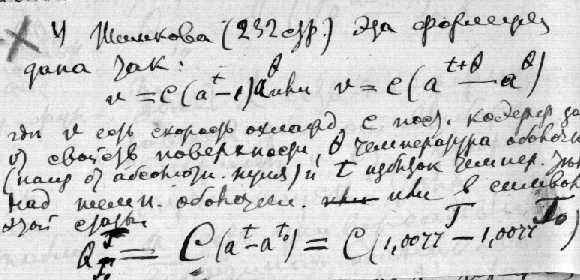 У Шимкова (232 стр.) эта формула
дана так:
v = C(a^t − 1)a^θ или v = c(a^{t+θ} − a^θ)
где v есть скорость охлажд. C пост. коэфиц. за
от свойств поверхности, θ температура оболочки
(напр от абсолютн. нуля) и t избыток темпер.
над темп. оболочки. или в
этой статьи
Q = C(a^t − a^{t_0}) = C(1,0077^T − 1,0077^{T_0})